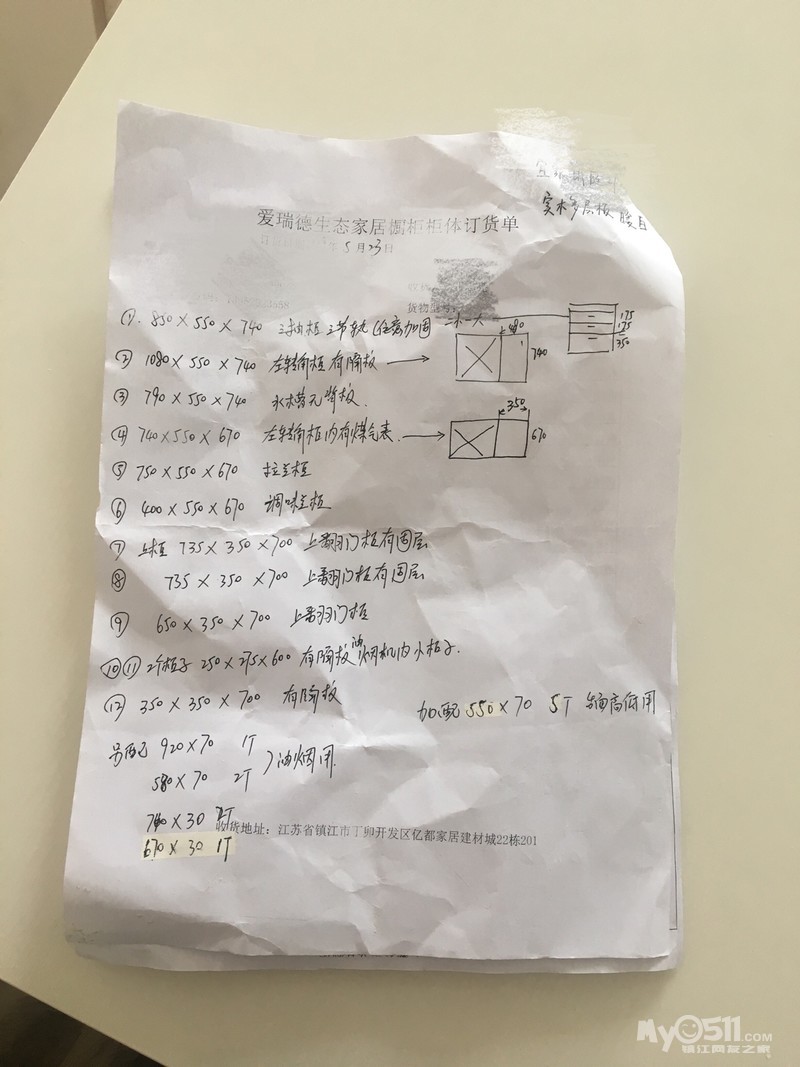 实木多层板
爱瑞德生态家居橱柜柜体订货单
5月23日
货物型号
① 850×550×740 三抽柜 三节轨 加固 二小一大
175
175
350
② 1080×550×740 左转角柜有隔板
480
740
③ 790×550×740 水槽无背板
④ 740×550×670 左转角柜内有煤气表
350
670
⑤ 750×550×670 拉兰柜
⑥ 400×550×670 调味兰柜
⑦ 上柜 735×350×700 上翻门柜有固层
⑧ 735×350×700 上翻门柜有固层
⑨ 650×350×700 上翻门柜
⑩⑪ 2个柜子 250×275×600 有隔板 油烟机内小柜子.
⑫ 350×350×700 有隔板
加配 550×70 5T 高低用
另配 920×70 1T
580×70 2T
油烟用
740×30
收货地址：江苏省镇江市丁卯开发区亿都家居建材城22栋201
670×30 1T
My0511.COM
镇江网友之家